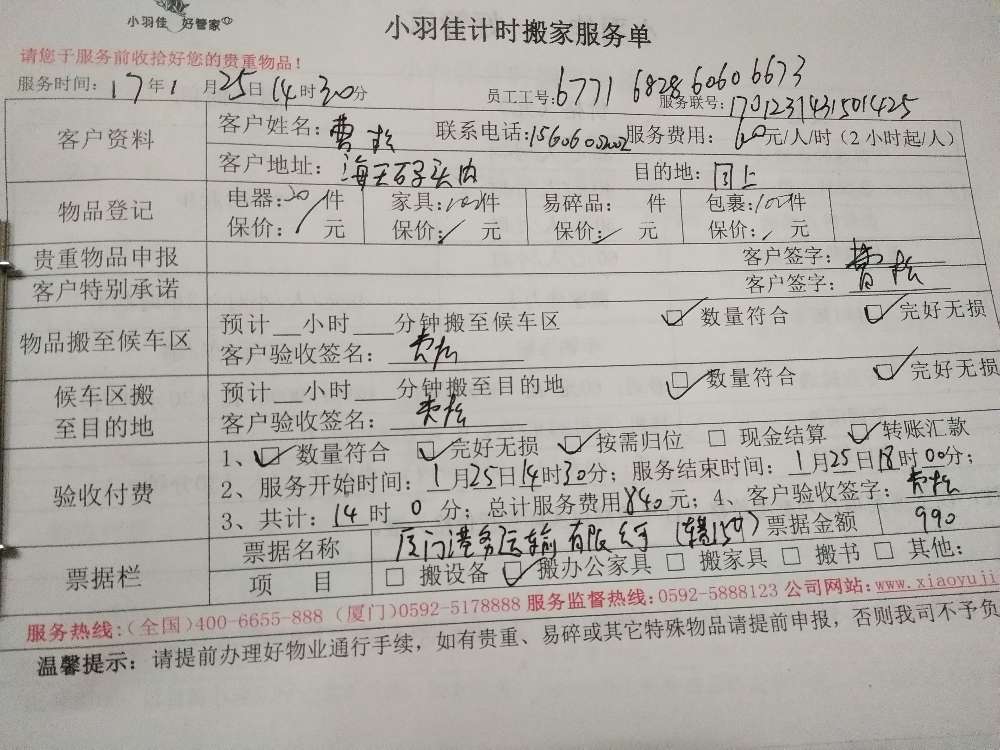 小羽佳 好管家
小羽佳计时搬家服务单
请您于服务前收拾好您的贵重物品！
服务时间：17年1月25日14时30分 员工工号：6771 6828 6060 6673
服务联号：1701231431501425
客户资料 客户姓名：曹松 联系电话： 服务费用：60元/人/时（2小时起/人）
客户地址： 目的地：同上
物品登记 电器：20件 家具：100件 易碎品： 件 包裹：100件
保价：/ 元 保价：/ 元 保价：/ 元 保价：/ 元
贵重物品申报 客户签字：曹松
客户特别承诺 客户签字：曹松
物品搬至候车区 预计__小时___分钟搬至候车区 ☑数量符合 ☑完好无损
客户验收签名：曹松
候车区搬至目的地 预计__小时___分钟搬至目的地 ☑数量符合 ☑完好无损
客户验收签名：曹松
验收付费 1、☑数量符合 ☑完好无损 ☑按需归位 □ 现金结算 ☑转账汇款
2、服务开始时间：1月25日14时30分；服务结束时间：1月25日18时00分；
3、共计：14时0分；总计服务费用840元；4、客户验收签字：曹松
票据栏 票据名称 厦门港务运输有限公司 票据金额 990
项 目 □ 搬设备 ☑搬办公家具 □ 搬家具 □ 搬书 □ 其他：
服务热线：(全国)400-6655-888 (厦门)0592-5178888 服务监督热线：0592-5888123 公司网站：www.xiaoyuji
温馨提示：请提前办理好物业通行手续，如有贵重、易碎或其它特殊物品请提前申报，否则我司不予负